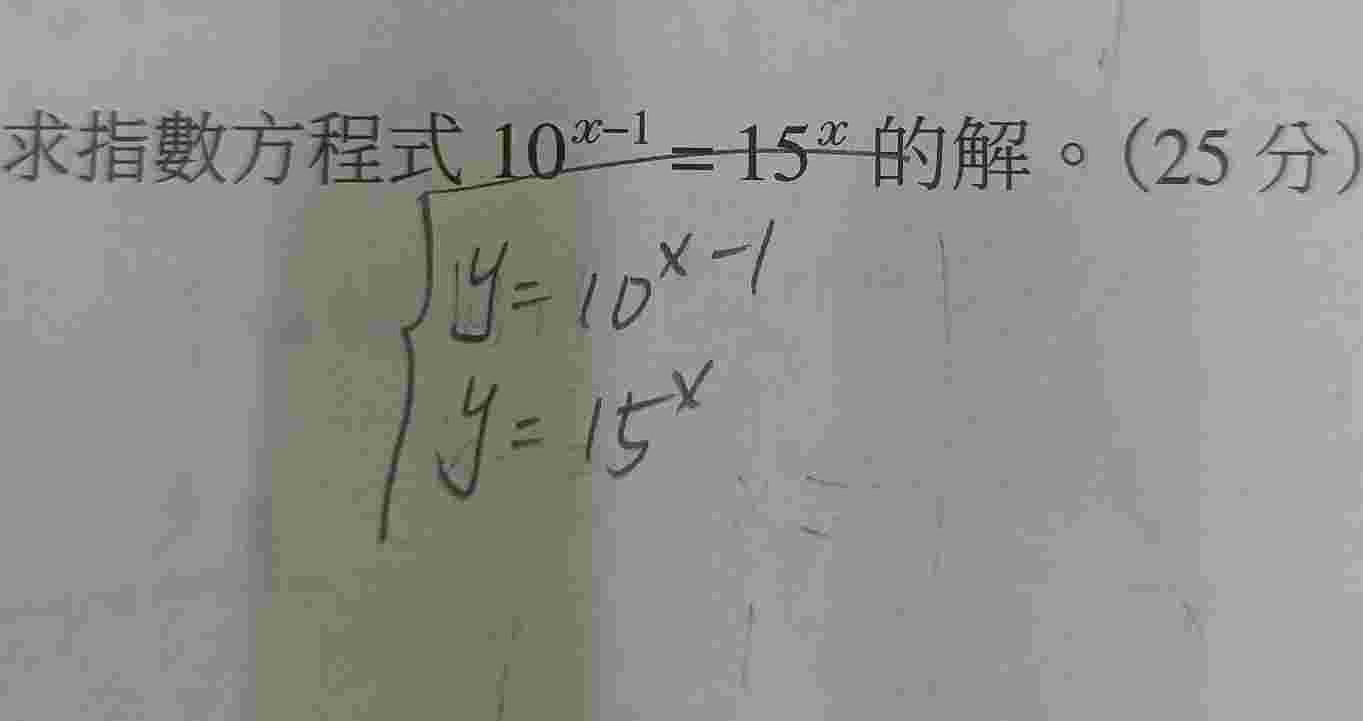 求指數方程式 10^{x-1} = 15^x 的解。(25 分)
y = 10^{x-1}
y = 15^x